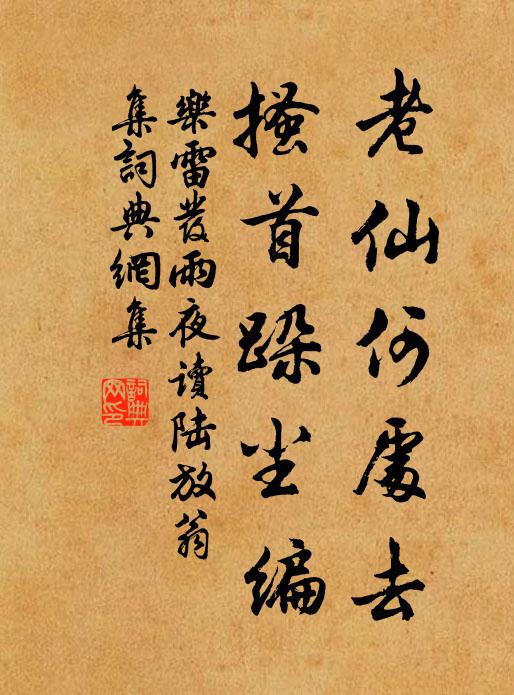 老仙何處去
搔首跺尘编
樂雷發雨夜讀陸放翁
集詞典網集
詞典
网印